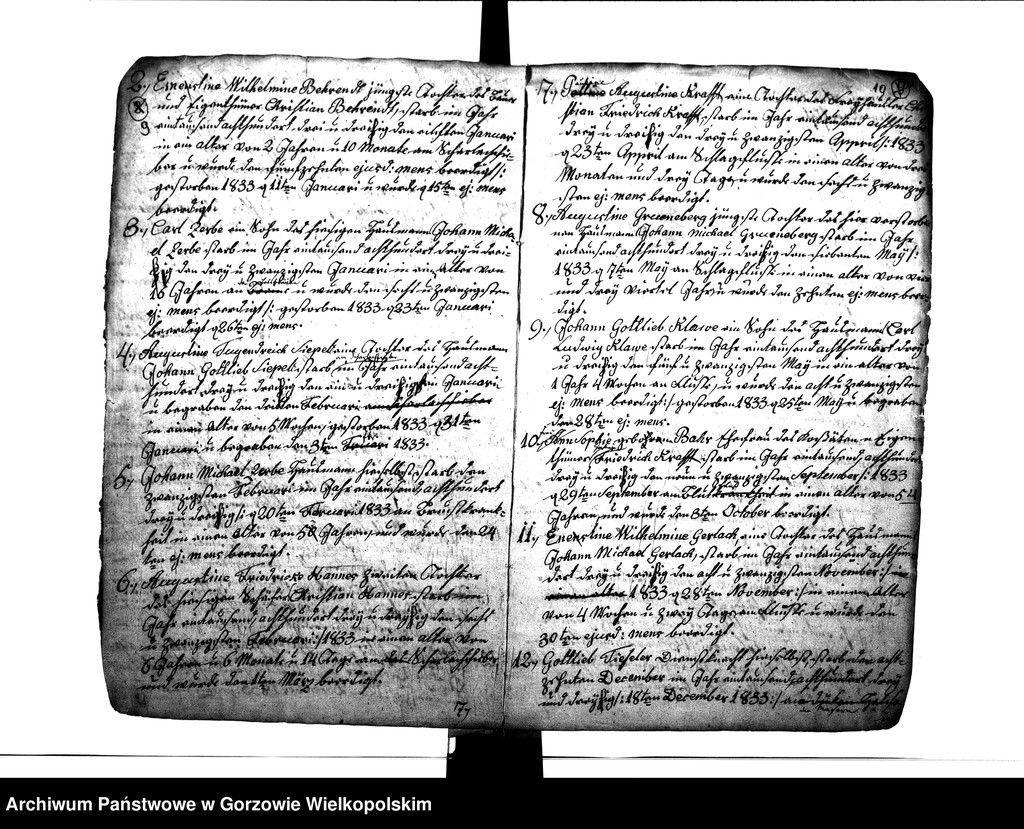 2., Ernestine Wilhelmine Behrendt jüngste Tochter des
und Eigenthümer Christian Behrendt, starb im Jahr
9 eintausend achthundert drei u dreißig den eilften Januari
in ein alter von 2 Jahren u 10 Monate am Scharlachfie-
ber u wurde den funfzehnten ejusd: mens beerdigt /:
gestorben 1833 d 11ten Januari u wurde d 15ten ej: mens
beerdigt.
3., Carl Zerbe ein Sohn des hiesigen Haulmann Johann Micha-
el Zerbe starb im Jahr eintausend achthundert drey u drei-
ßig den drey u zwanzigsten Januari in ein Alter von
Jahren an u wurde den sechs u zwanzigsten
ej: mens beerdigt /: gestorben 1833 d 23ten Januari
beerdigt d 26ten ej: mens.
4., Augustine Tugendreich eine Tochter des Haulmann
Johann Gottlieb starb im Jahr eintausend acht-
hundert drey u dreißig den ein u dreißigsten Januari
u begraben den dritten Februari
in einem Alter von 5 Wochen /: gestorben 1833 d 31ten
Januari u begraben den 3ten 1833.
5., Johann Michael Zerbe Haulmann hieselbst, starb den
zwanzigsten Februari im Jahr eintausend achthundert
drey u dreißig /: d 20ten Februari 1833 an Brustkrank-
heit in einem Alter von Jahren, und wurde den 24
ten ej: mens beerdigt.
6., Augustine Friedricke Hannes zweiten Tochter
des hiesigen Schäfer Christian Hannes, starb im
Jahr eintausend achthundert drey u dreyßig den sechs
u zwanzigsten Februari :/ 1833 in einem alter von
6 Jahren u 6 Monate u 14 Tage an Scharlachfieber
und wurde den 1ten März beerdigt.
7,
19
7., Augustine Krafft, eine Tochter des
stian Friedrick Krafft, starb im Jahr eintausend achthundert
drey u dreißig den drey u zwanzigsten Appril /: 1833
d 23ten Appril am Schlagfluß in einem alter von drei
Monaten und drey Tage u wurde den sechs u zwanzig-
sten ej: mens beerdigt.
8., Augustine Grueneberg jüngste Tochter des hier verstorbe-
nen Haulmann Johann Michael Grueneberg starb im Jahr
eintausend achthundert drey u dreißig den siebenten May /:
1833 d 7ten May an Schlagfluß in einem alter von
und drey viertel Jahr u wurde den zehnten ej: mens beer-
digt.
9., Johann Gottlieb Klawe ein Sohn des Haulmann Carl
Ludwig Klawe starb im Jahr eintausend achthundert drey
u dreißig den fünf u zwanzigsten May in ein alter von
1 Jahr 4 Wochen an u wurde den acht u zwanzigsten
ej: mens beerdigt :/ gestorben 1833 d 25ten May u begraben
den 28ten ej: mens.
10., Ann Sophie geborn Bahr Ehefrau des Kossäten u Eigen-
thümer Friedrick Krafft, starb im Jahr eintausend achthundert
drey u dreißig den neun u zwanzigsten September /: 1833
d 29ten September am in einem alter von 54
Jahren, und wurde den 3ten October beerdigt.
11., Ernestine Wilhelmine Gerlach, eine Tochter des Haulmann
Johann Michael Gerlach, starb im Jahr eintausend achthun-
dert drey u dreißig den acht u zwanzigsten November :/
1833 d 28ten November :/ in einem Alter
von 4 Wochen u zwey Tage, am u wurde den
30ten ejusd: mens beerdigt.
12., Gottlieb Dienstknecht hieselbst, starb den acht-
zehnten December im Jahr eintausend achthundert drey
und dreyßig /: 18ten December 1833 :/
Archiwum Państwowe w Gorzowie Wielkopolskim